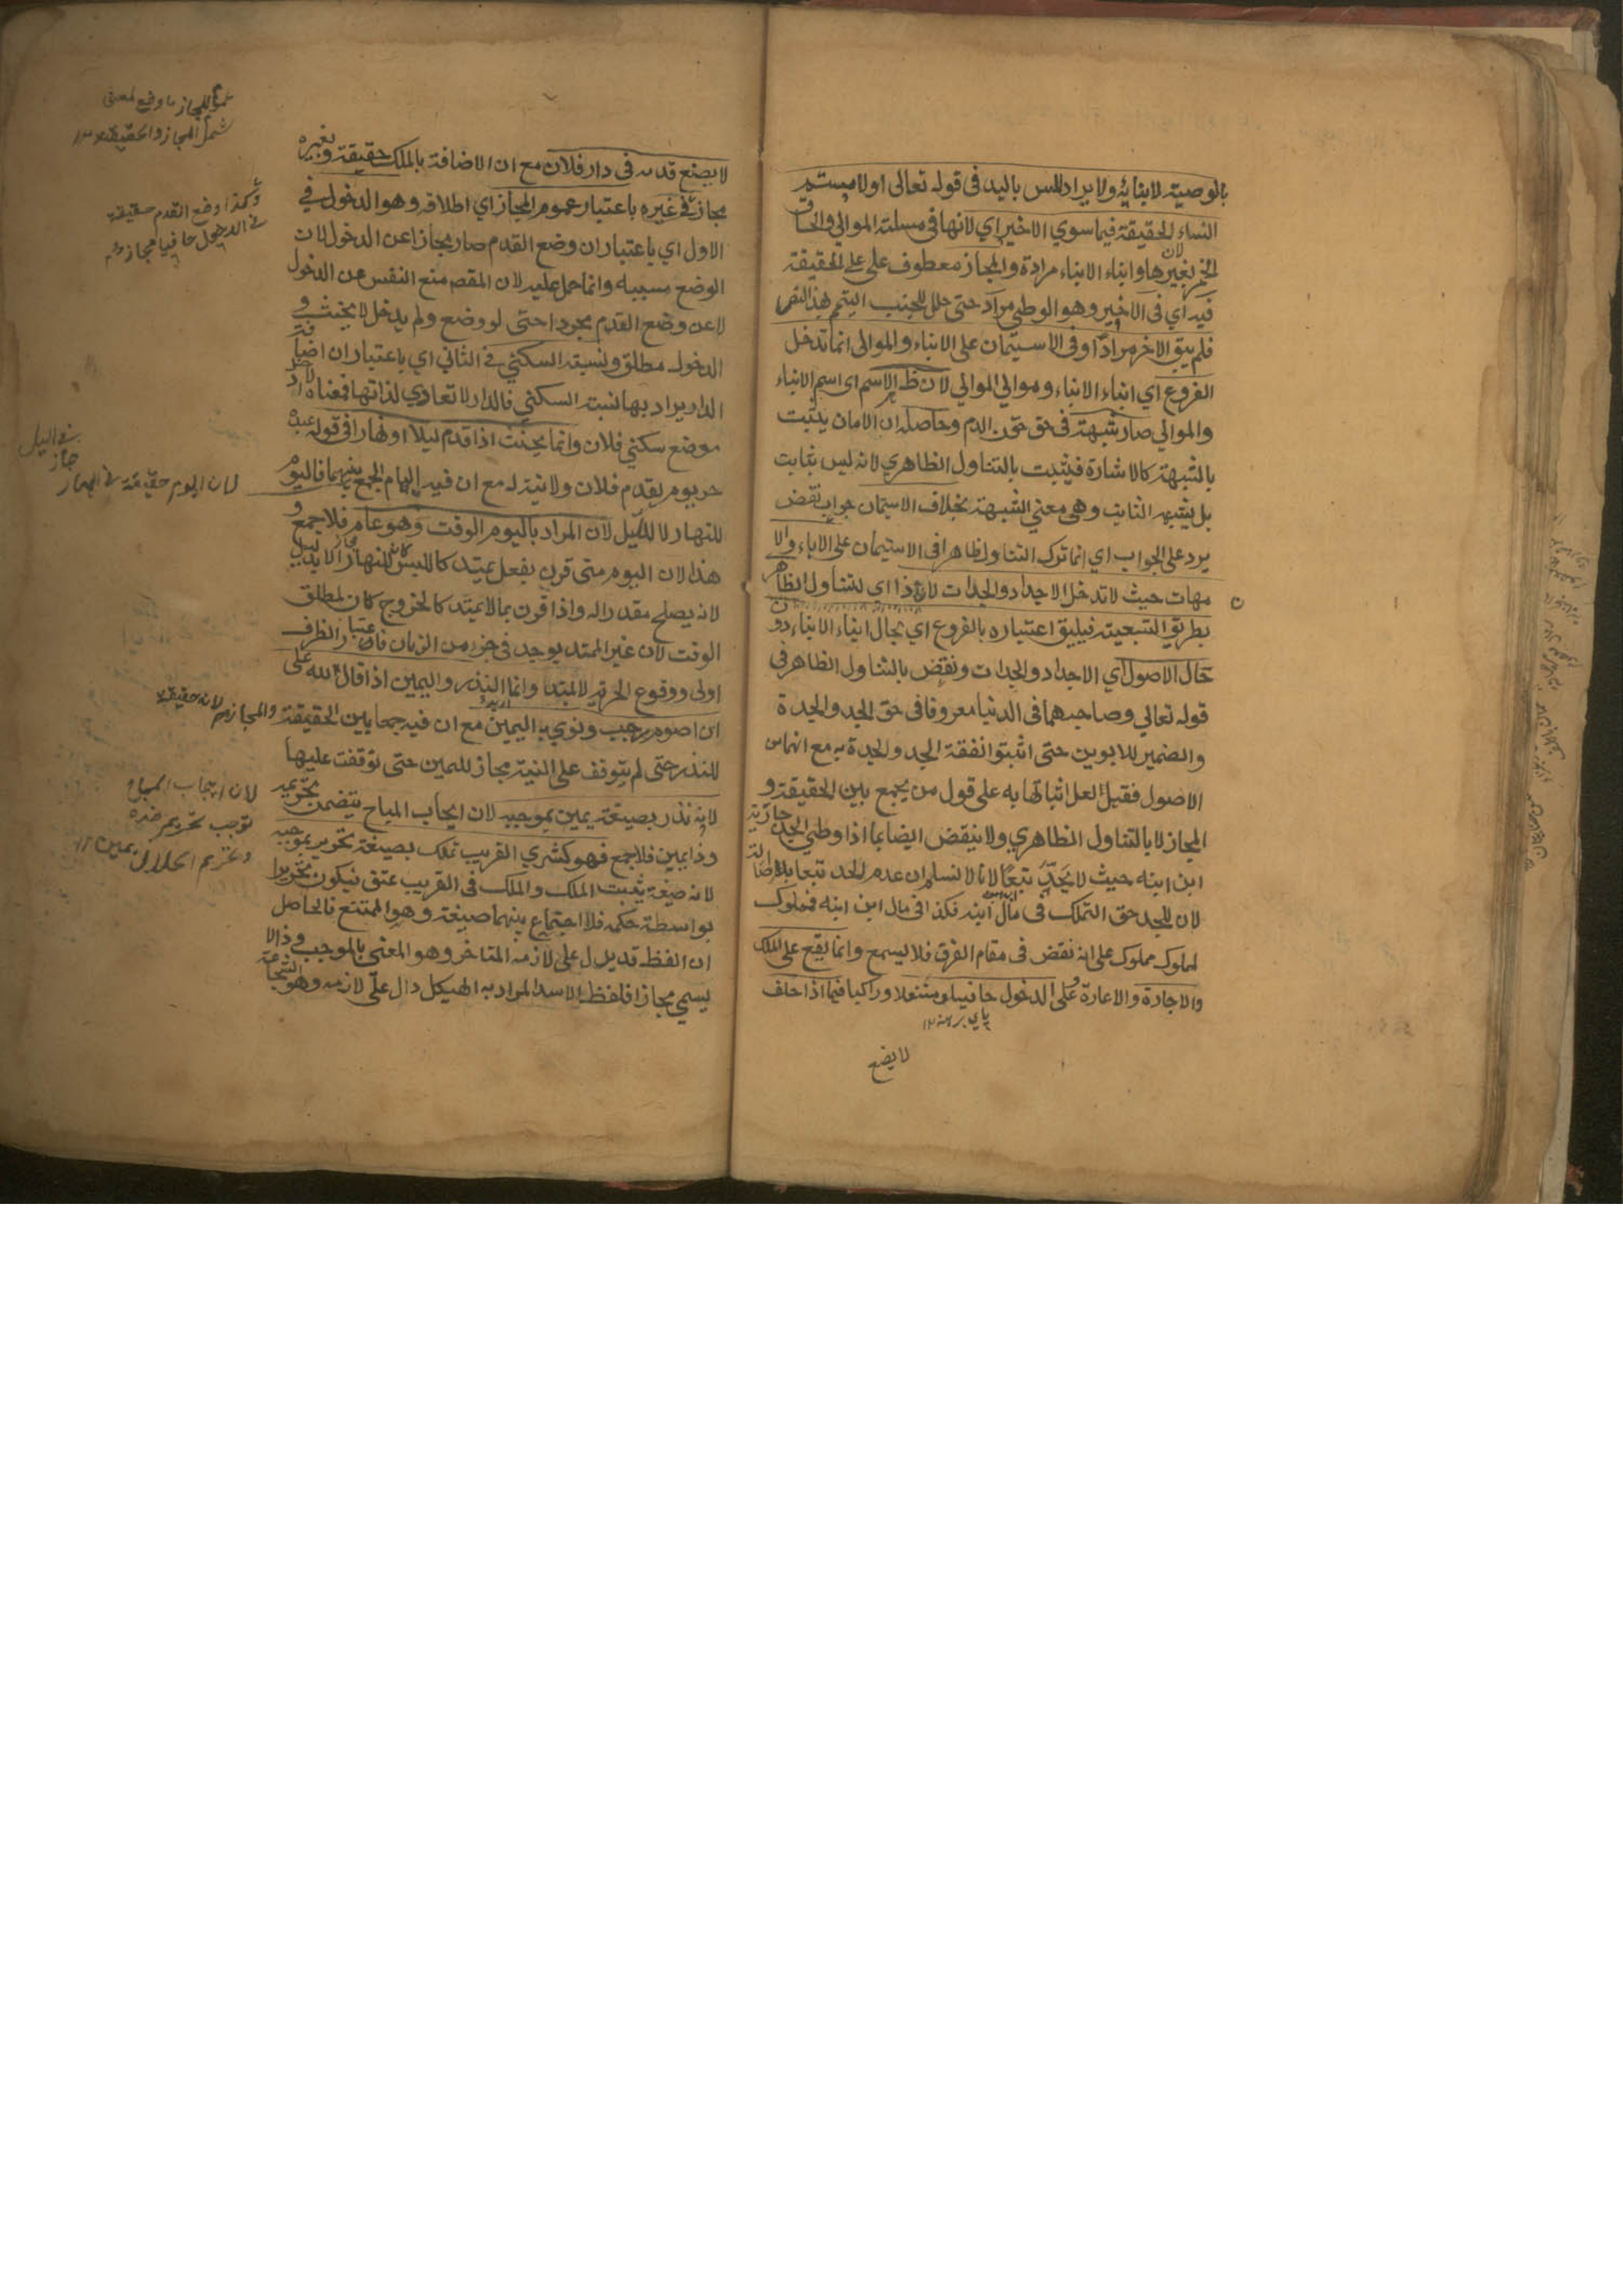 بالوصية لابنائه ولا يراد المس باليد فى قوله تعالى او لامستم
النساء الحقيقة فيما سوي الاخير اي لانها فى مسئلة الموالي والحاق
الخمر بغيرها وابناء الابناء مرادة والمجاز معطوف على على الحقيقة
فيه اي فى الاخير وهو الوطي مراد حتى حل للجنب التيمم بهذا النص
فلم يبق الاخر مرادًا وفى الاستيمان على الابناء والموالى انما تدخل
الفروع اي ابناء الابناء وموالي الموالي لان ظ الاسم اى اسم الابناء
والموالي صار شبهة فى حق حقن الدم وحاصله ان الامان يثبت
بالشبهة كالاشارة فيثبت بالتناول الظاهري لانه ليس بثابت
بل يشبه الثابت وهى معني الشبهة بخلاف الاستيمان جواب نقض
يرد على الجواب اي انما ترك التناول ظاهرا فى الاستيمان على الاباء والا
مهات حيث لا تدخل الاجداد والجدات لان ذا اي لتناول الظاهر
بطريق التبعية فيليق اعتباره بالفروع اي بحال ابناء الابناء دون
حال الاصول اي الاجداد والجدات ونقض بالتناول الظاهر فى
قوله تعالي وصاحبهما فى الدنيا معروفا فى حق الجد والجدة
والضمير للابوين حتى اثبتوا نفقة الجد والجدة به مع انهما من
الاصول فقيل لعل اثباتها به على قول من يجمع بين الحقيقة و
المجاز لا بالتناول الظاهري ولا ينقض ايضا بما اذا وطي الجد جارية
ابن ابنه حيث لا يحدّ تبعًا لانا لا نسلم ان عدم الحد تبعا بل اصالة
لان للجد حق التملك فى مال ابنه فكذا فى مال ابن ابنه فمملوك
لمملوك مملوك على انه نقض فى مقام الفرق فلا يسمع وانما يقع على الملك
والاجارة والاعارة وعلى الدخول حافيا ومتنعلا وراكبا فيما اذا حلف
پاي برهنه ١٢
لا يضع
لا يضع قدمه فى دار فلان مع ان الاضافة بالملك حقيقة وبغيره
مجاز فى غيره باعتبار عموم المجاز اي اطلاقه وهو الدخول في
الاول اي باعتبار ان وضع القدم صار مجازا عن الدخول لان
الوضع مسببه وانما حمل عليه لان المقص منع النفس عن الدخول
لا عن وضع القدم مجردا حتى لو وضع ولم يدخل لا يحنث و
الدخول مطلق ونسبة السكني فى الثاني اي باعتبار ان اضافة
الدار يراد بها نسبة السكني فالدار لا تعادي لذاتها فمعناه
موضع سكني فلان وانما يحنث اذا قدم ليلا او نهارا فى قوله عبده
حر يوم يقدم فلان ولا نية له مع ان فيه ايهام الجمع بينهما فاليوم
للنهار لا لليل لان المراد باليوم الوقت وهو عام فلا جمع و
هذا لان اليوم متى قرن بفعل يمتد كاللبس كان للنهار
لانه يصلح مقدرا له واذا قرن بما لا يمتد كالخروج كان لمطلق
الوقت لان غير الممتد يوجد فى جزء من الزمان فاعتبار الظرف
اولى ووقوع الحرية لا يمتد وانما اريد النذر واليمين اذا قال لله على
ان اصوم رجب ونوي به اليمين مع ان فيه جمعا بين الحقيقة والمجاز
للنذر حتى لم يتوقف على النية مجاز لليمين حتى توقفت عليها
لانه نذر بصيغته يمين بموجبه لان ايجاب المباح يتضمن تحريمه
وذا يمين فلا جمع فهو كشري القريب تملك بصيغته تحرير بموجبه
لانه صيغة يثبت الملك والملك فى القريب عتق فيكون تحريرا
بواسطة حكمه فلا اجتماع بينهما صيغة وهو الممتنع فالحاصل
ان الفظ قد يدل على لازمه المتاخر وهو المعني بالموجب وذا لا
يسمي مجازا فلفظ الاسد المراد به الهيكل دال على لازمه وهو الشجاعة
عموم المجاز ما وضع لمعنى
شمل المجاز والحقيقة ١٢
وكذا وضع القدم حقيقة
فى الدخول حافيا مجاز
فى اليل
جاز
لان اليوم حقيقة فى النهار
لانه حقيقة
لان ايجاب المباح
توجب تحريم ضده
وتحريم الحلال يمين ١٢